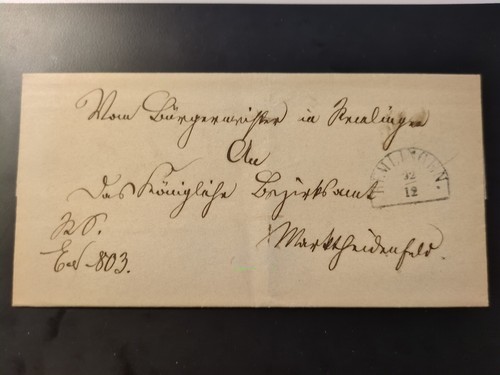 Vom Bürgermeister in Remlingen
An
Das Königliche Bezirksamt
Marktheidenfeld.
R.S.
803.
REMLINGEN.
22
12